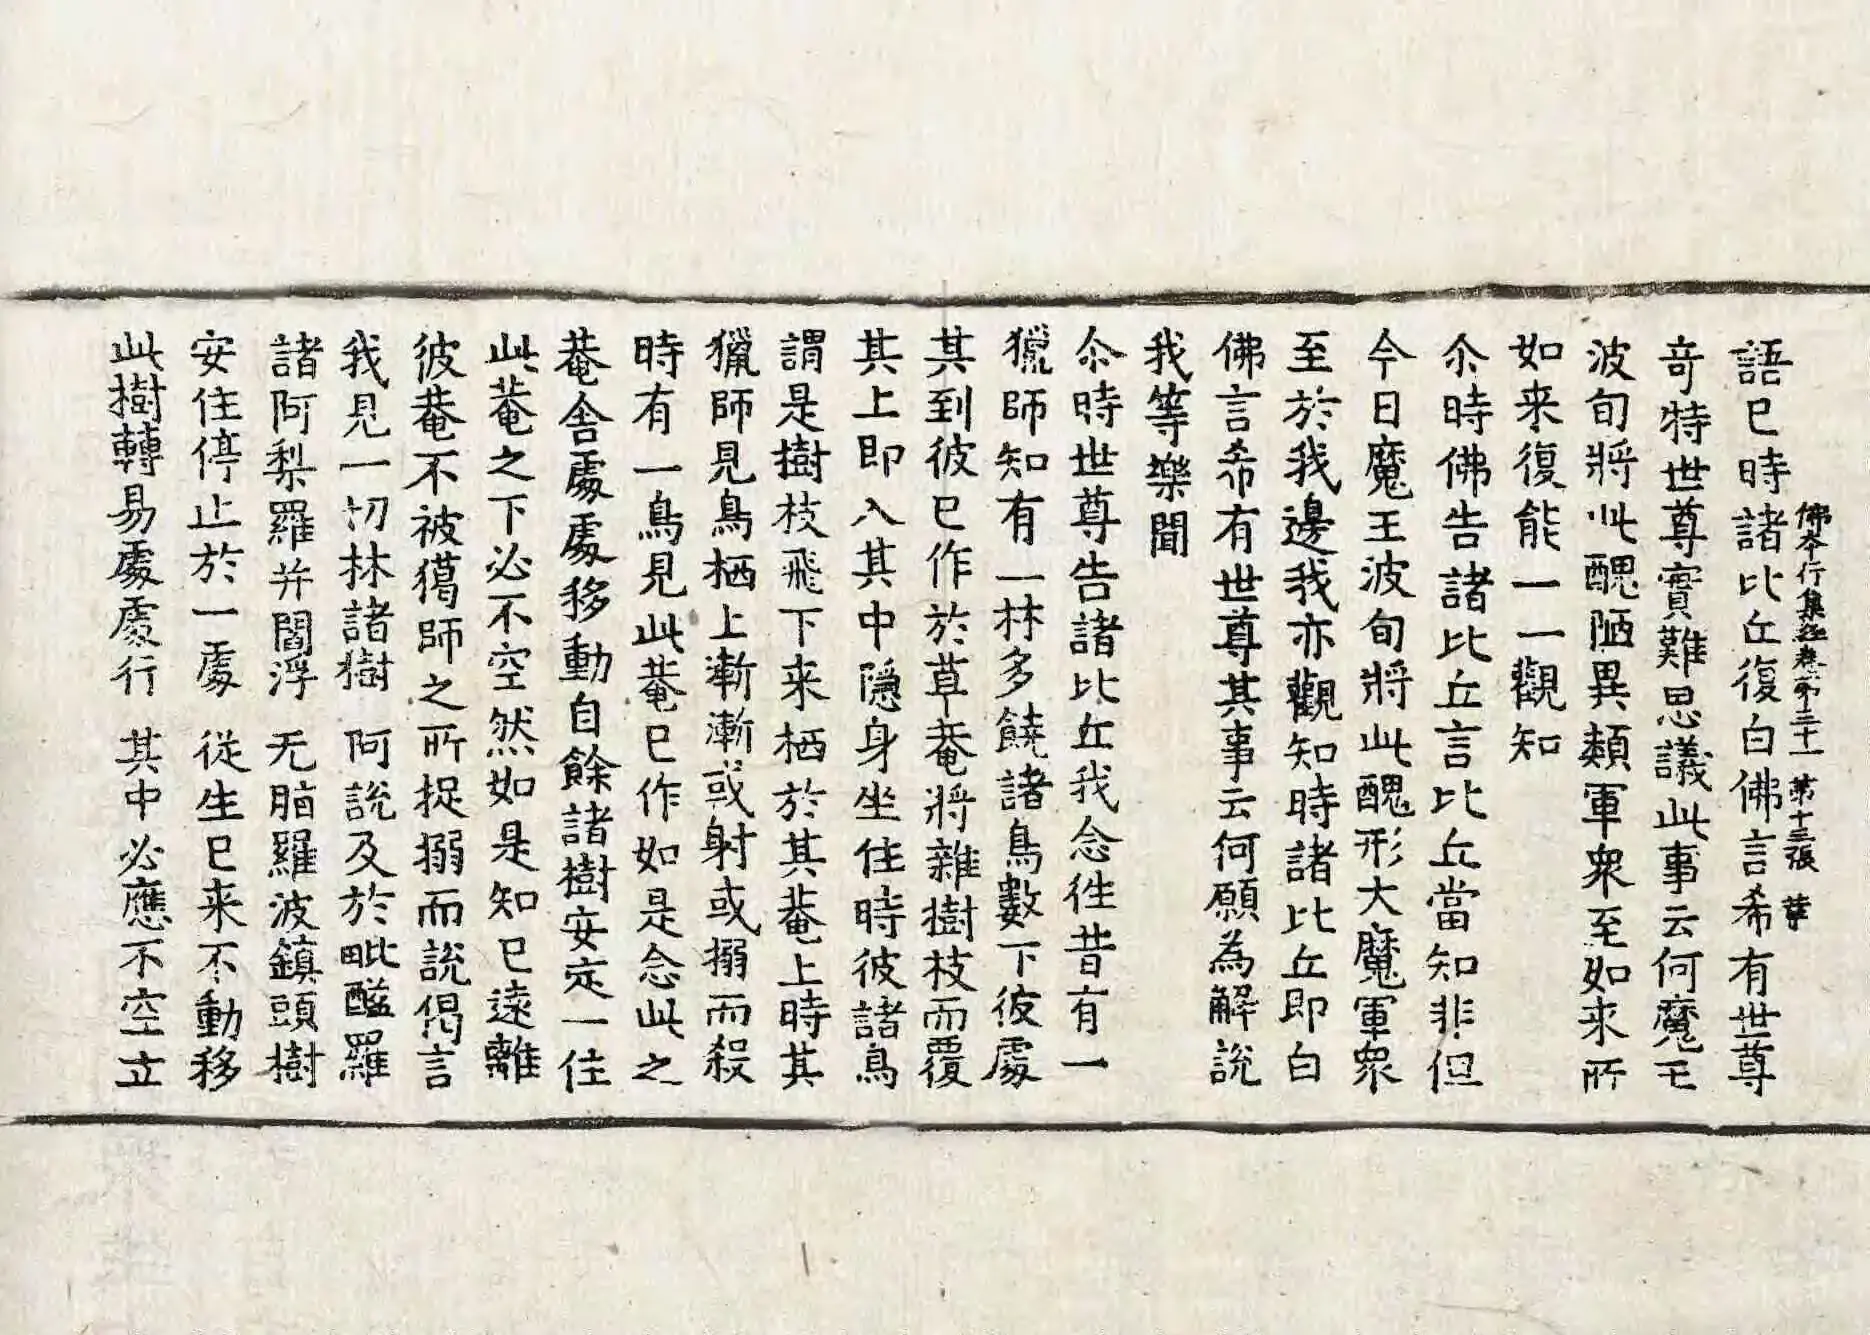 佛本行集經卷第三十一 第十三張 華
語已時諸比丘復白佛言希有世尊
奇特世尊實難思議此事云何魔王
波旬將此醜陋異類軍衆至如来所
如来復能一一觀知
尒時佛告諸比丘言比丘當知非但
今日魔王波旬將此醜形大魔軍衆
至於我邊我亦觀知時諸比丘即白
佛言希有世尊其事云何願為解說
我等樂聞
尒時世尊告諸比丘我念徃昔有一
獵師知有一林多饒諸鳥數下彼處
其到彼已作於草菴將雜樹枝而覆
其上即入其中隱身坐住時彼諸鳥
謂是樹枝飛下来栖於其菴上時其
獵師見鳥栖上漸漸或射或搦而殺
時有一鳥見此菴已作如是念此之
菴舎處處移動自餘諸樹安定一住
此菴之下必不空然如是知已遠離
彼菴不被獦師之所捉搦而說偈言
我見一切林諸樹 阿說及於毗醯羅
諸阿梨羅并閻浮 无脂羅波鎮頭樹
安住停止於一處 從生已来不動移
此樹轉易處處行 其中必應不空立